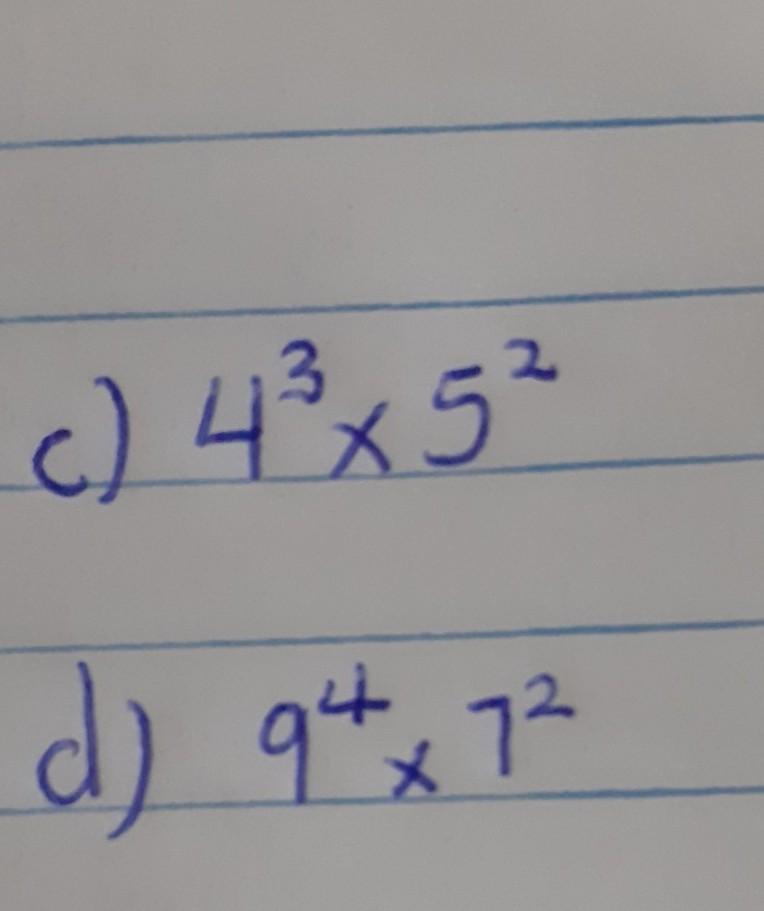 c) 4³ x 5²
d) 9⁴ x 7²